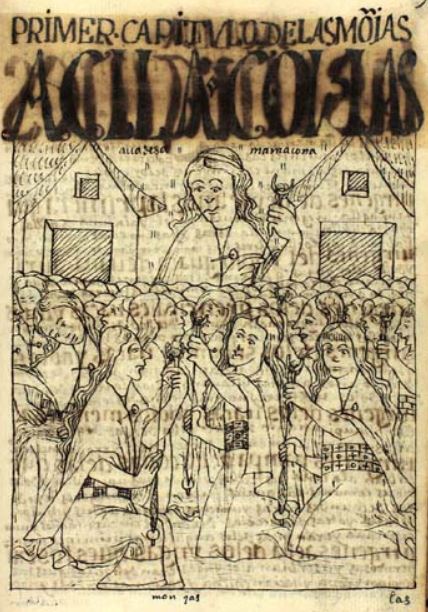 PRIMER·CAPITVLO·DELASMÕJAS
ACLLACONAS
auadesa mamacona
mon jas
las